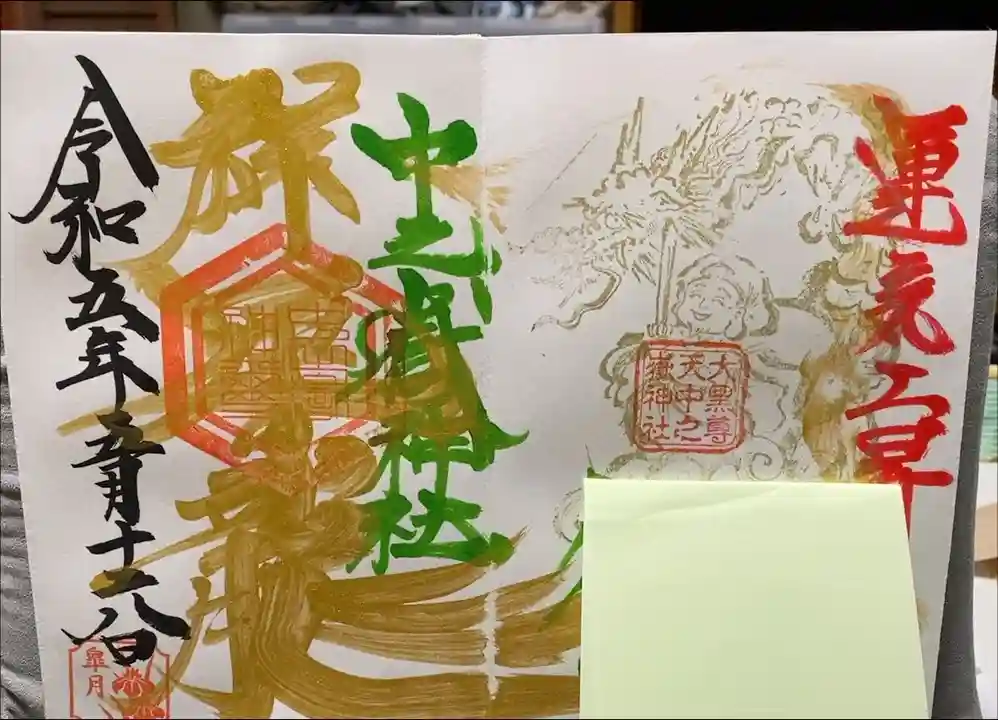 運気上昇
大黒尊
天中之
嶽神社
中之嶽神社
龍
令和五年五月十六日
皐月